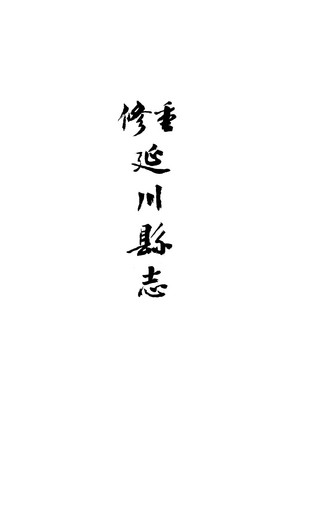 重修
延川縣志